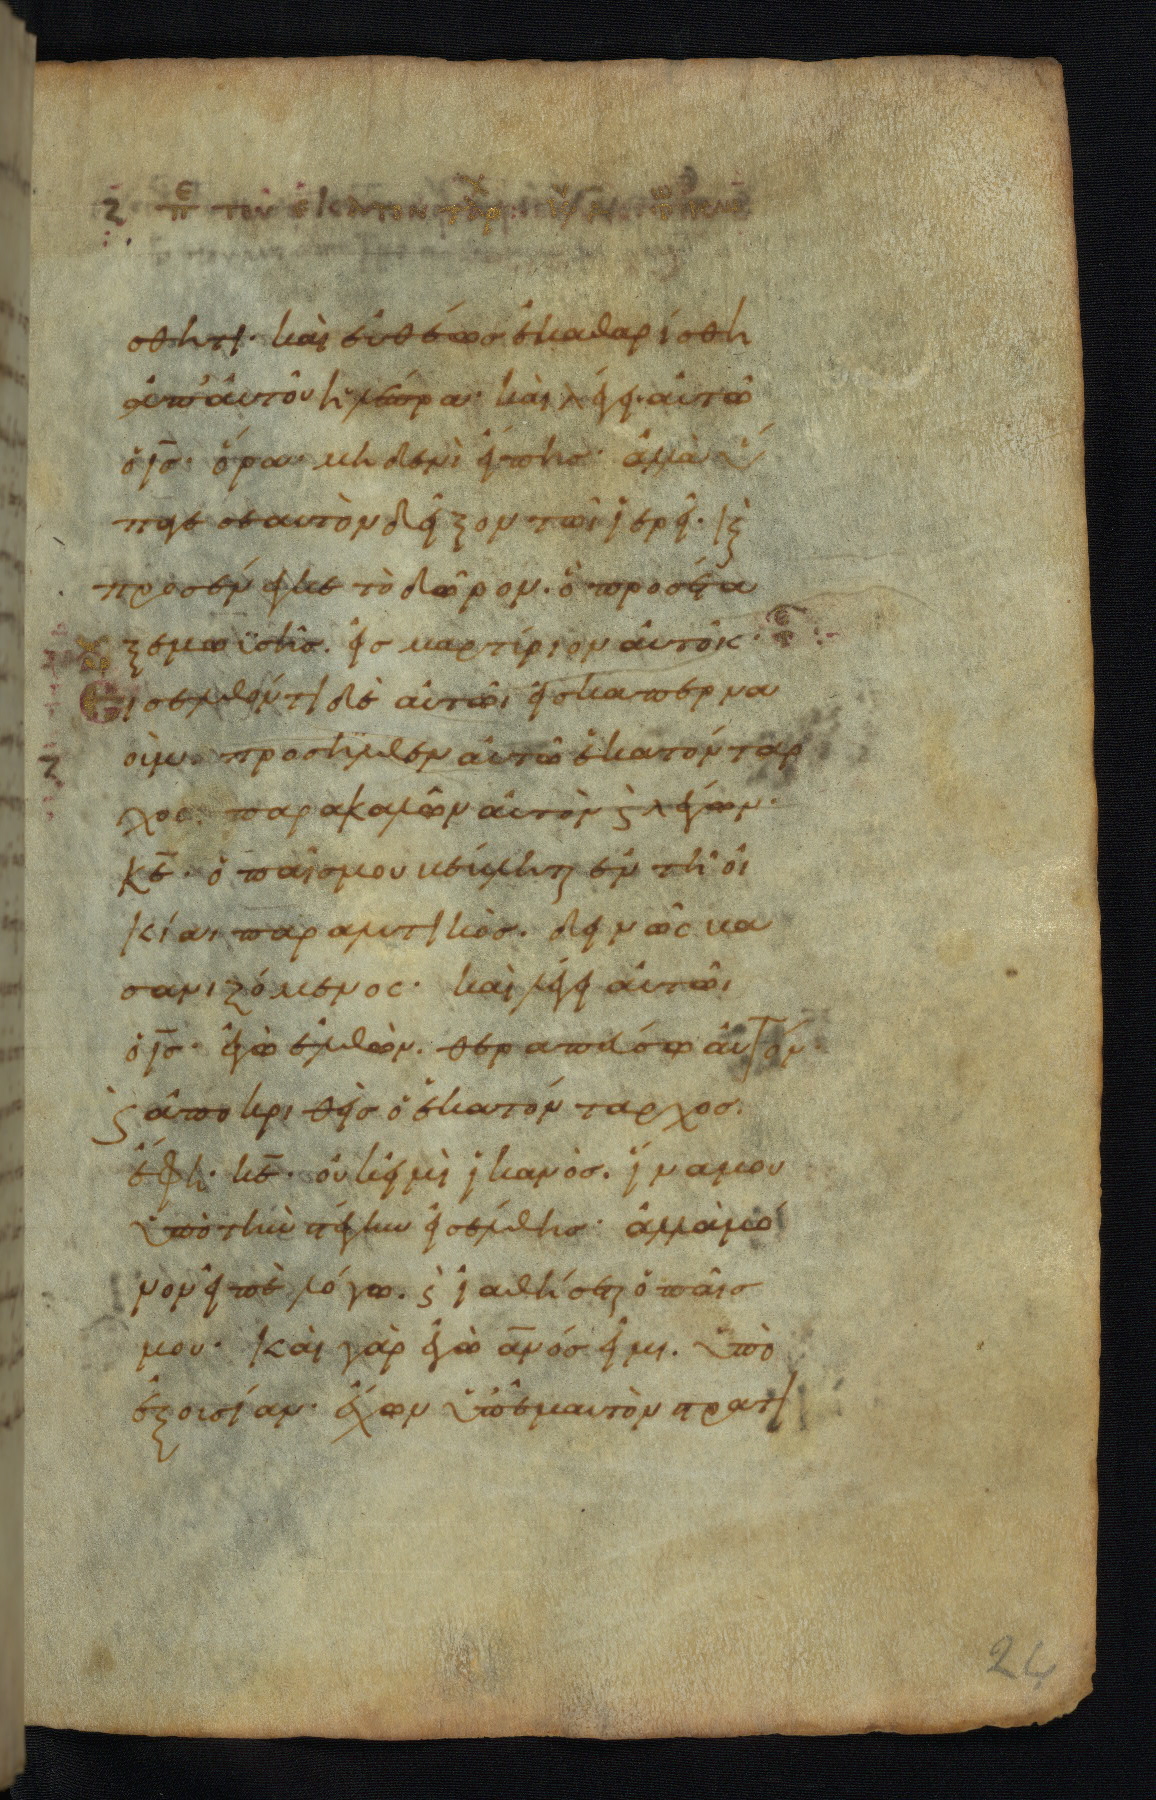 ζ π̅ε τοῦ ἑκατοντάρχ
σθητι· καὶ εὐθέωσ ἐκαθαρίσθη
ἀπ' ἀυτοῦ ἡ λέπρα· καὶ λέγει αὐτῶ
ὁ ι̅σ̅· ὅρα μηδενὶ εἴπησ· ἀλλὰ ὕ
παγε σεαυτὸν δεῖξον τῶι ἱερεῖ· κ̀
προσένεγκε τὸ δῶρον· ὃ προσέτα
ξε μωϋσῆσ· εἰσ μαρτύριον αὐτοῖς·
Εἰσελθόντι δὲ αὐτῶι εἰσ καπερνα
οὺμ· προσῆλθεν αὐτῶ ἑκατόνταρ
χος· παρακαλῶν αὐτὸν ϛ̀ λέγων·
κ̅ε̅· ὁ παῖσ μου βέβληται ἐν τῆ οἰ
κίαι παραλυτικὸσ· δεινῶς βα
σανιζόμενος· καὶ λέγει αὐτῶι
ὁ ι̅σ̅· ἐγὼ ἐλθὼν· θεραπεύσω αὐτόν·
ϛ̀ ἀποκριθεὶσ ὁ ἑκατόνταρχοσ·
ἔφη· κ̅ε̅· οὐκ εἰμὶ ἱκανὸσ· ἵνα μου
ὑπὸ τὴν στέγην εἰσέλθησ· ἀλλὰ μό
νον εἰπὲ λόγω· ϛ̀ ἰαθήσεται ὁ παῖσ
μου· καὶ γὰρ ἐγὼ α̅ν̅όσ εἰμι· ὑπὸ
ἐξουσίαν· ἔχων ὑπ' ἐμαυτὸν στρατι
24